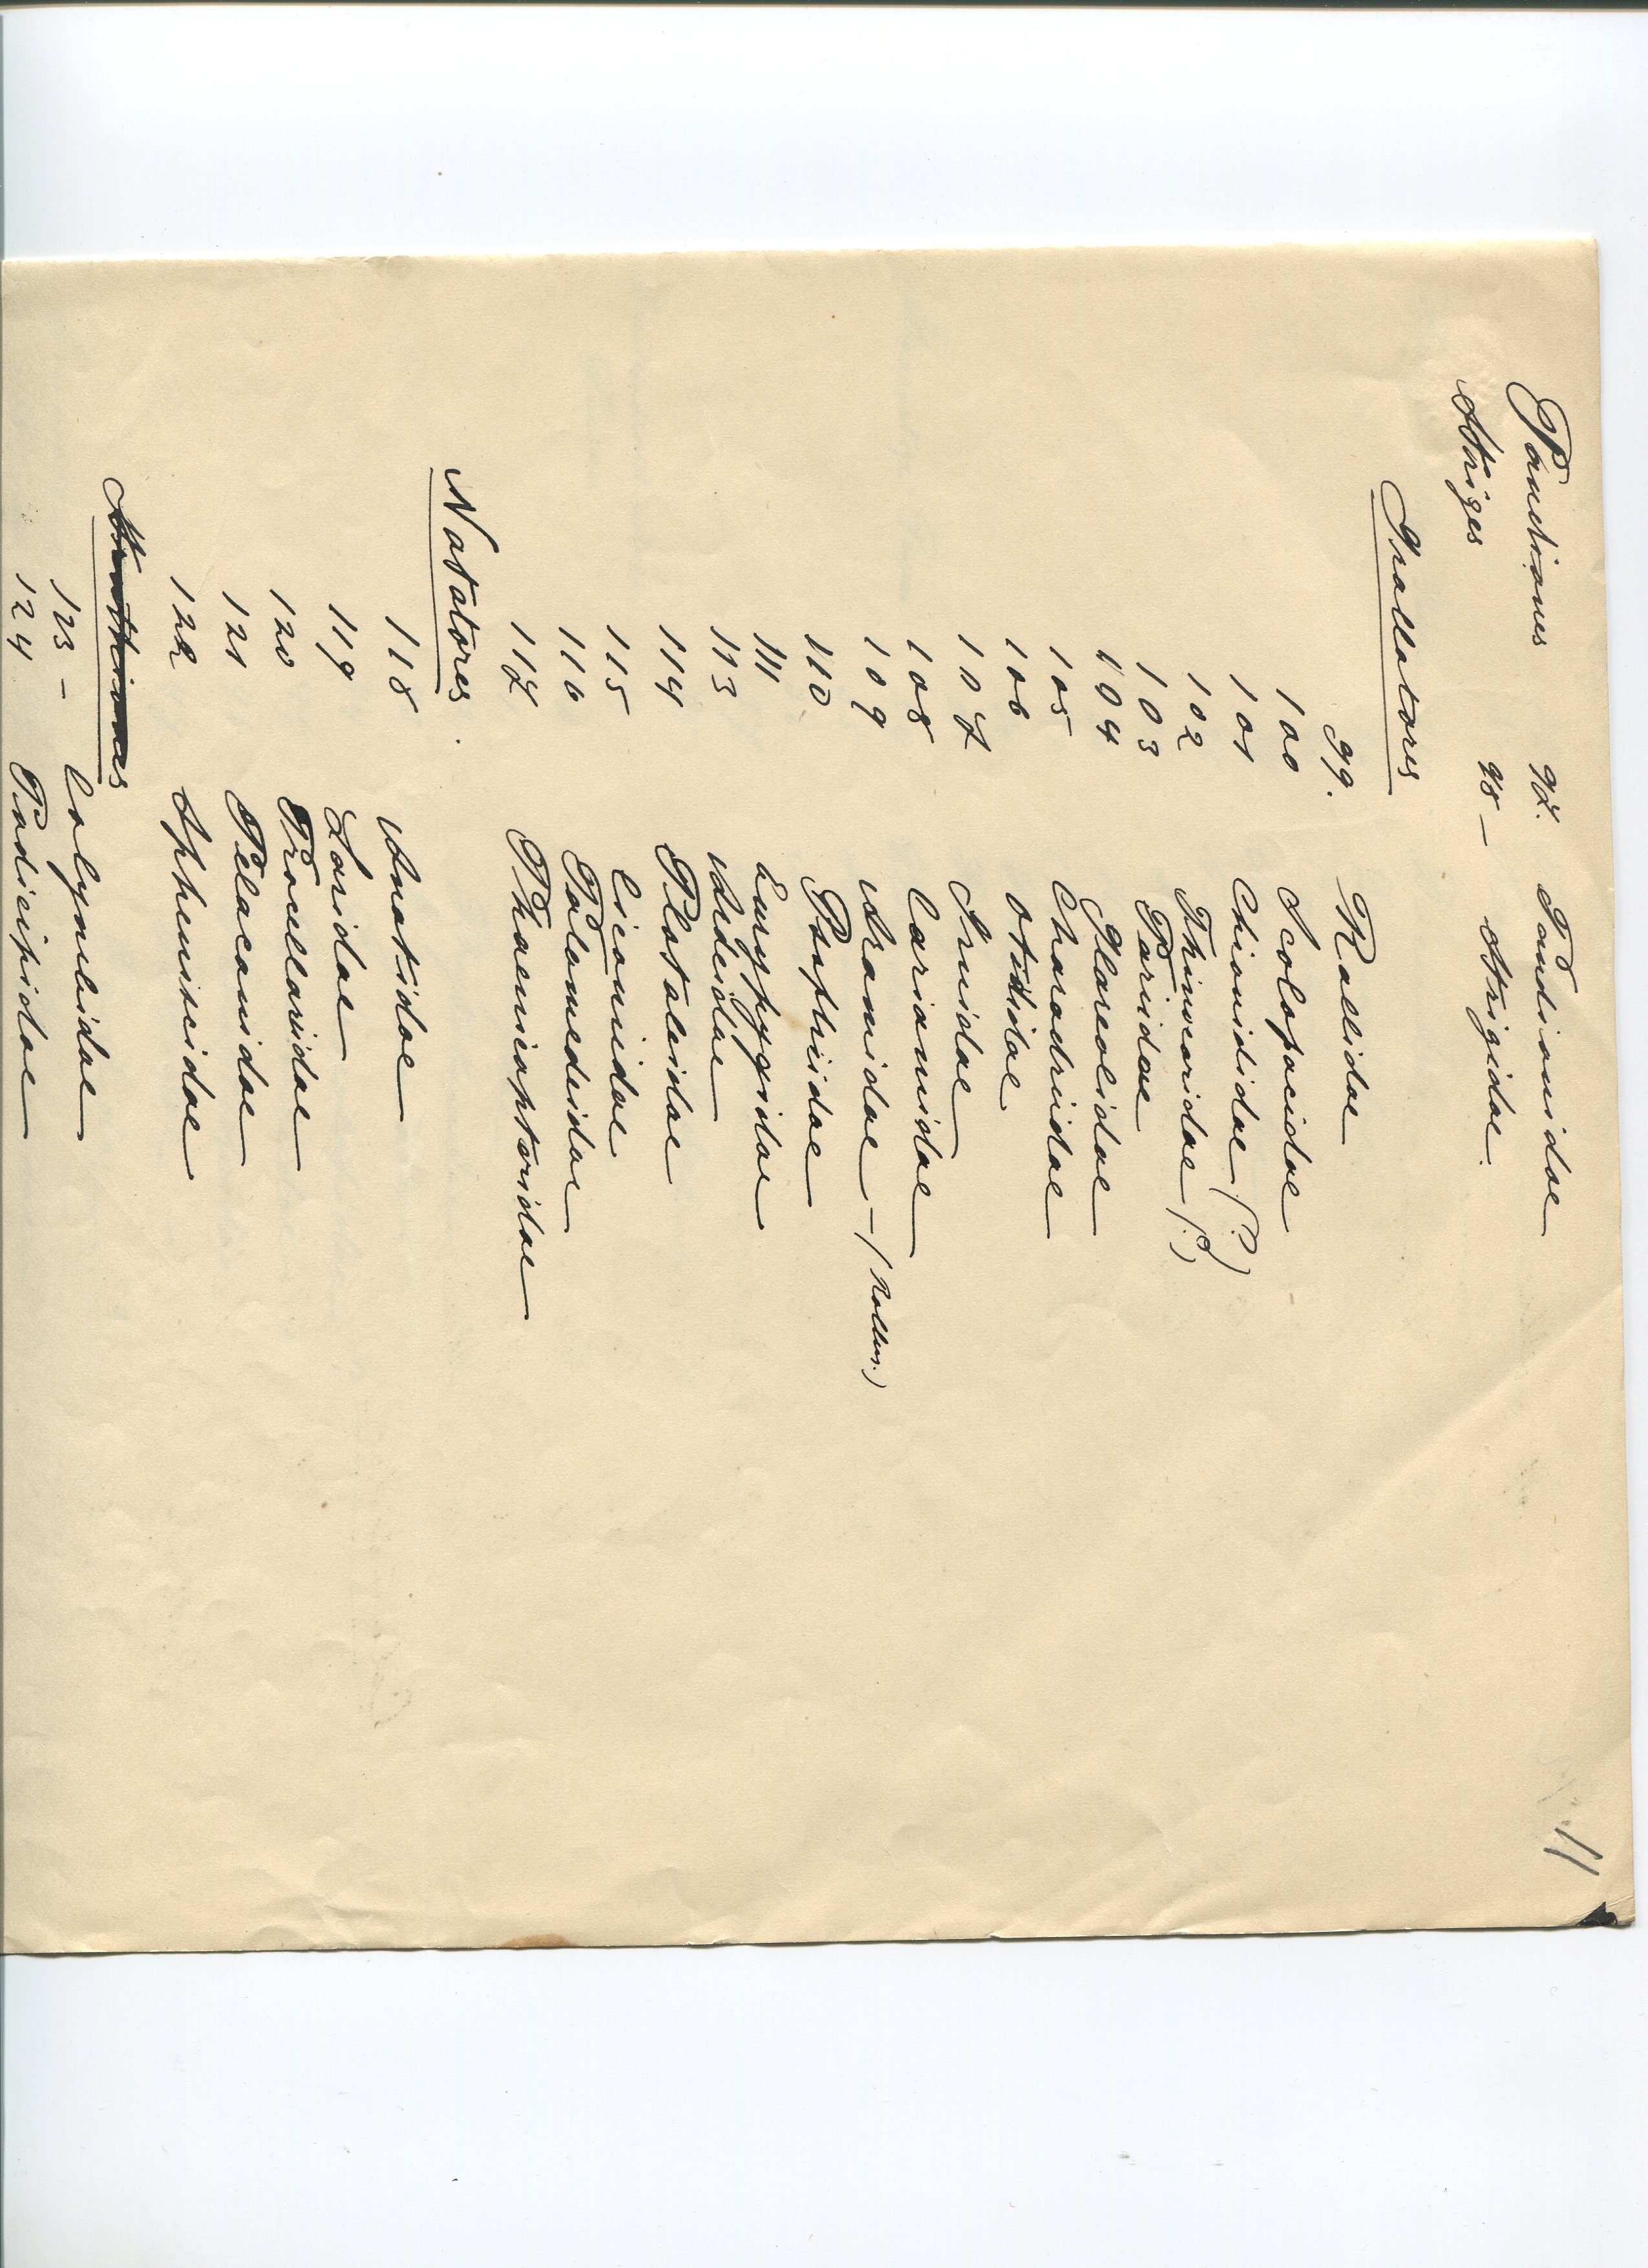 11
Pandiones 97. Pandionidae
Striges 98 – Strigidae.
Grallatores
99. Rallidae
100 Scolopacidae
101 Chionididae (?)
102 Thinocoridae (?)
103 Paridae
104 Glareolidae
105 Charadriidae
106 Otididae
107 Gruidae
108 Carianidae
109 Aramidae – (
110 Psophiidae
111 Eurypygidae
113 Ardeidae
114 Plataleidae
115 Ciconiidae
116 Palamedeidae
117 Phaenicopteridae
Natatores.
118 Anatidae
119 Laridae
120 Procellaridae
121 Pelacanidae
122 Spheniscidae
Struthiones
123 – Colymbidae
124 Podicipidae